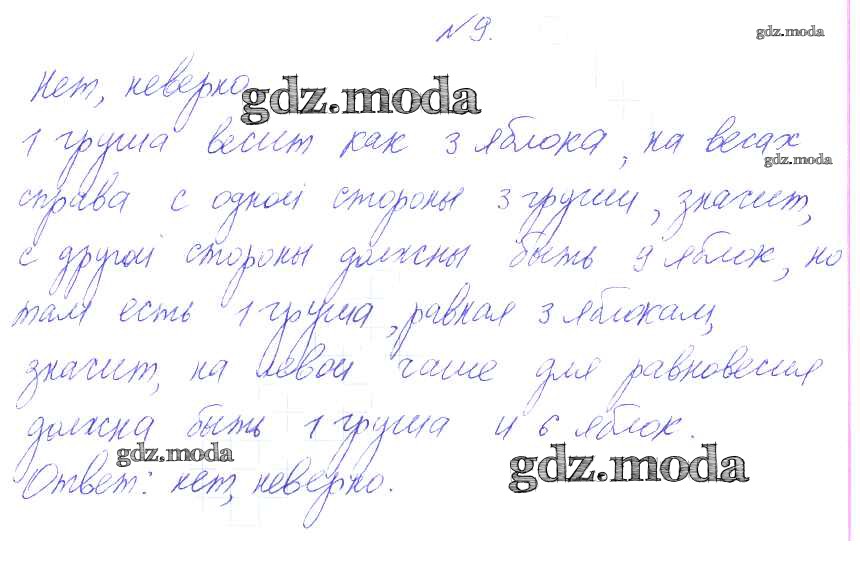 №9.
gdz.moda
Нет, неверно
gdz.moda
1 груша весит как 3 яблока, на весах
gdz.moda
справа с одной стороны 3 груши, значит,
с другой стороны должны быть 9 яблок, но
там есть 1 груша, равная 3 яблокам,
значит, на левой чаше для равновесия
должна быть 1 груша и 6 яблок.
gdz.moda
gdz.moda
Ответ: нет, неверно.